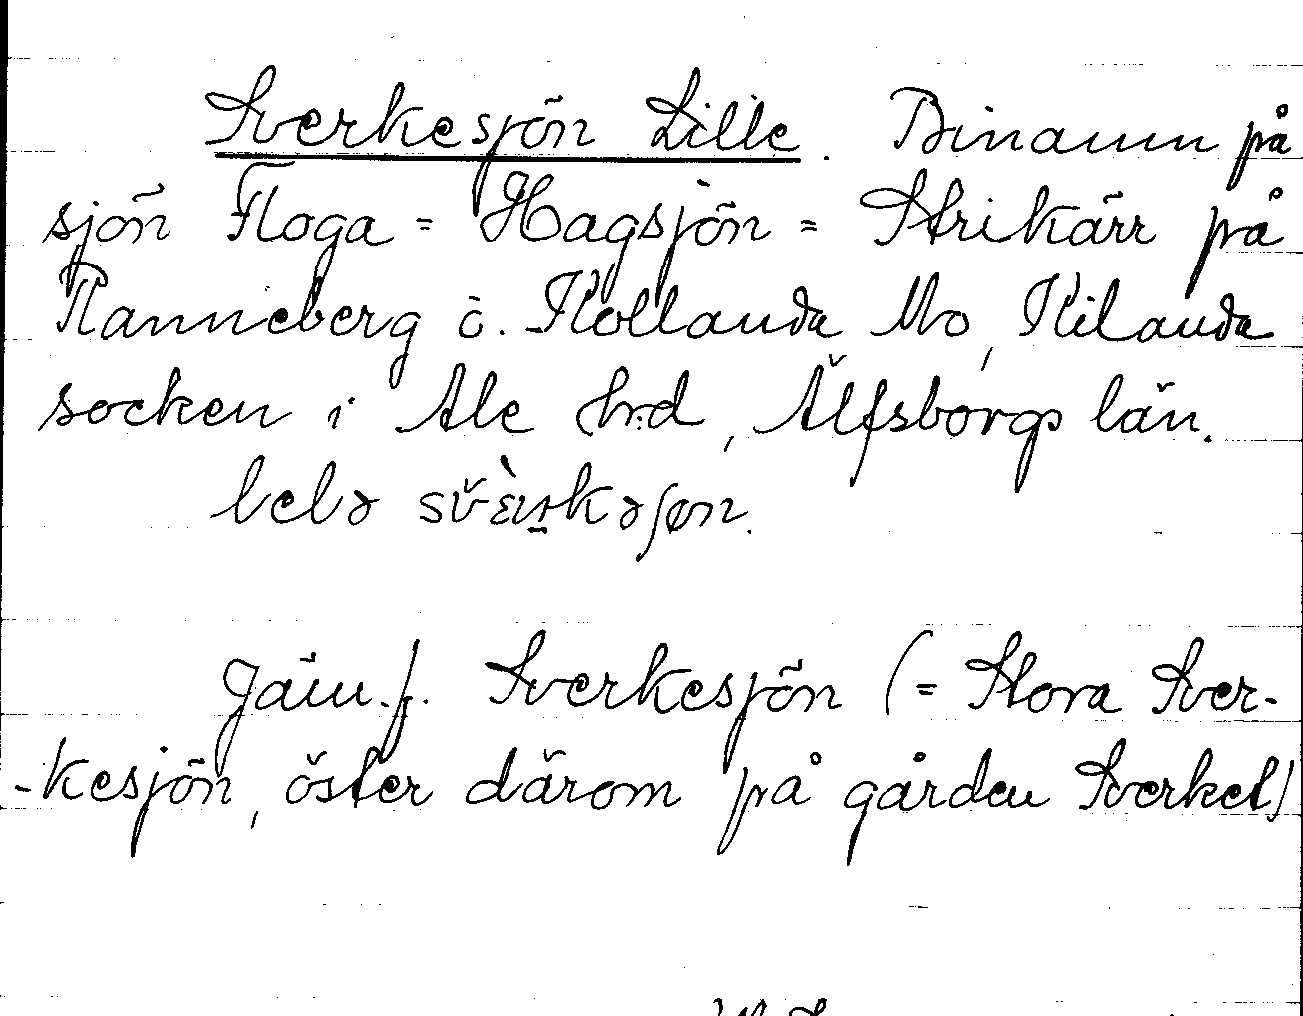 Sverkesjön Lille. Binamn på
sjön Floga = Hagsjön = Strikärr på
Ranneberg i. Kollanda Mo, Kilanda
socken i Ale hrd, Älfsborgs län.
lelə svènskəʃøn.
Jäm.f. Sverkesjön (= Stora Sver-
-kesjön, öster därom på gården Sverkel)